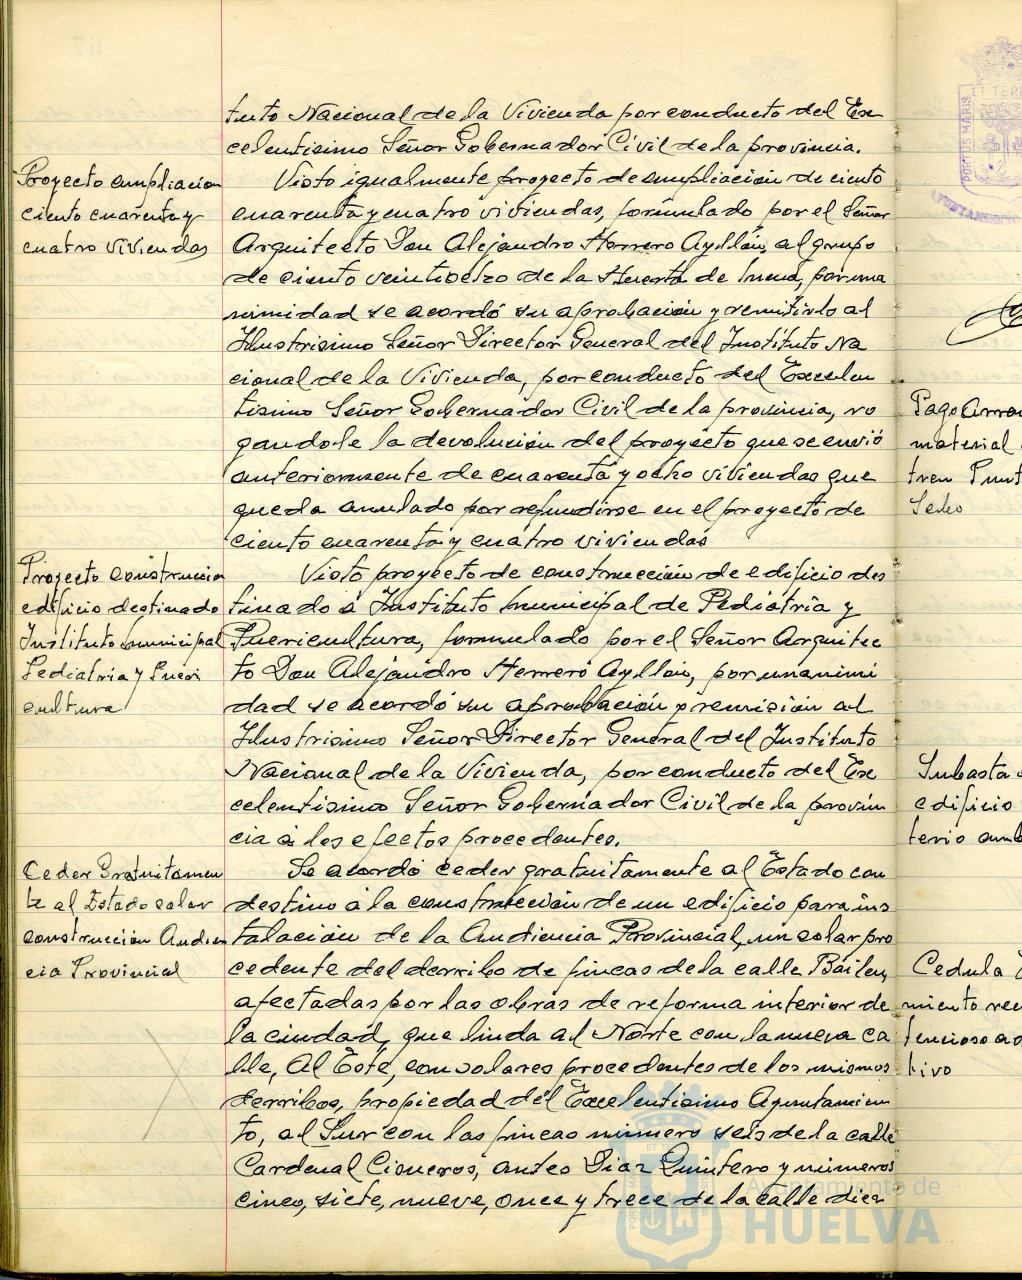 tuto Nacional de la Vivienda por conducto del Ex
celentisimo Señor Gobernador Civil de la provincia.
Proyecto ampliacion
ciento cuarenta y
cuatro viviendas
Visto igualmente proyecto de ampliación de ciento
cuarenta y cuatro viviendas, formulado por el Señor
Arquitecto Don Alejandro Herrero Ayllón, al grupo
de ciento veintiocho de la Huerta de Mena, por una
nimidad se acordó su aprobación y remitirlo al
Ilustrisimo Señor Director General del Instituto Na
cional de la Vivienda, por conducto del Excelen
tisimo Señor Gobernador Civil de la provincia, ro
gandole la devolución del proyecto que se envió
anteriormente de cuarenta y ocho viviendas que
queda anulado por refundirse en el proyecto de
ciento cuarenta y cuatro viviendas
Proyecto construccion
edificio destinado
Instituto Municipal
Pediatria y Pueri
cultura
Visto proyecto de construcción de edificio des
tinado á Instituto Municipal de Pediatría y
Puericultura, formulado por el Señor Arquitec
to Don Alejandro Herrero Ayllón, por unanimi
dad se acordó su aprobación y remisión al
Ilustrisimo Señor Director General del Instituto
Nacional de la Vivienda, por conducto del Ex
celentisimo Señor Gobernador Civil de la provin
cia á los efectos procedentes.
Ceder Gratuitamen
te al Estado solar
construcción Audien
cia Provincial
Se acordó ceder gratuitamente al Estado con
destino á la construcción de un edificio para ins
talación de la Audiencia Provincial, un solar pro
cedente del derribo de fincas de la calle Bailen,
afectadas por las obras de reforma interior de
la ciudad, que linda al Norte con la nueva ca
lle, Al Este, con solares procedentes de los mismos
derribos, propiedad del Excelentisimo Ayuntamien
to, al Sur con las fincas número seis de la calle
Cardenal Cisneros, antes Diaz Quintero y números
cinco, siete, nueve, once y trece de la calle diez
PORTUS MARIS
ET TERR
AYUNTAMIENTO
Pago Arren
material
tren Punt
Sebo
Subasta
edificio
terio amb
Cedula
miento rec
tencioso ad
tivo
Ayuntamiento de
HUELVA